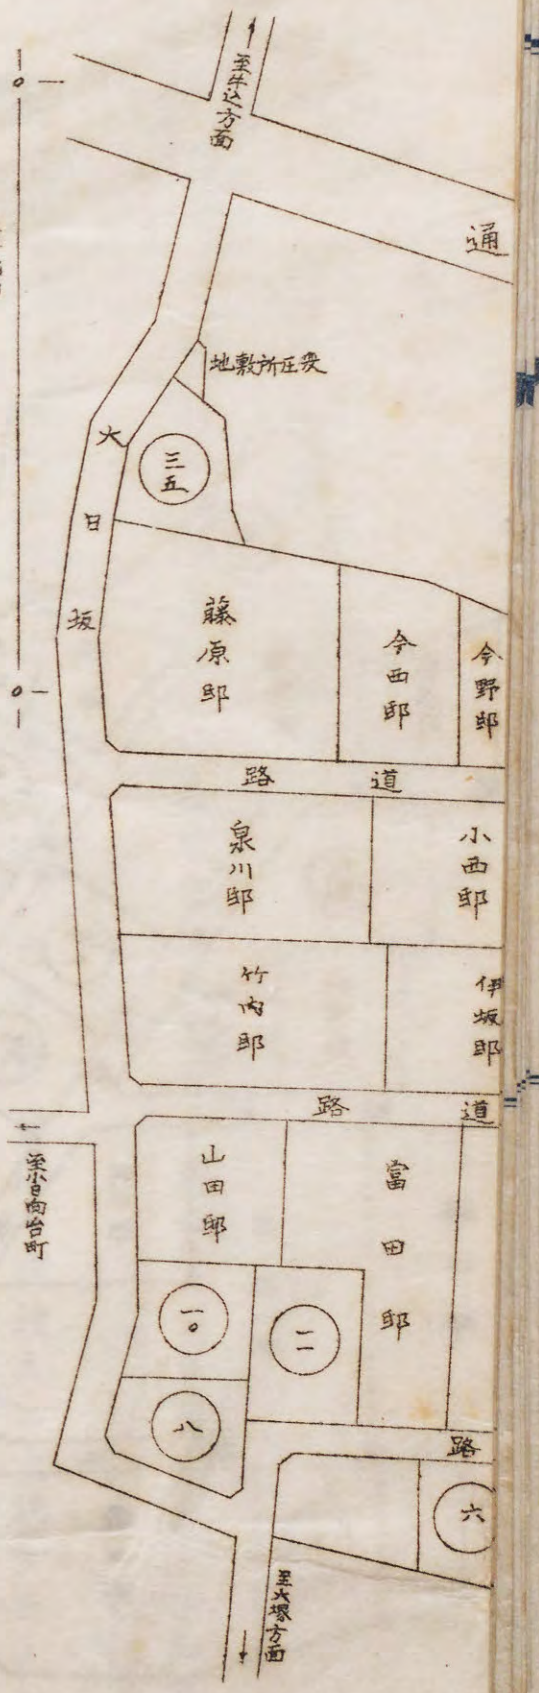 至牛込方面
通
地敷所圧変
三五
大日坂
藤原邸
今西邸
今野邸
路道
泉川邸
小西邸
竹内邸
伊坂邸
路道
至小日向台町
山田邸
富田邸
一〇
一一
八
路
六
至大塚方面